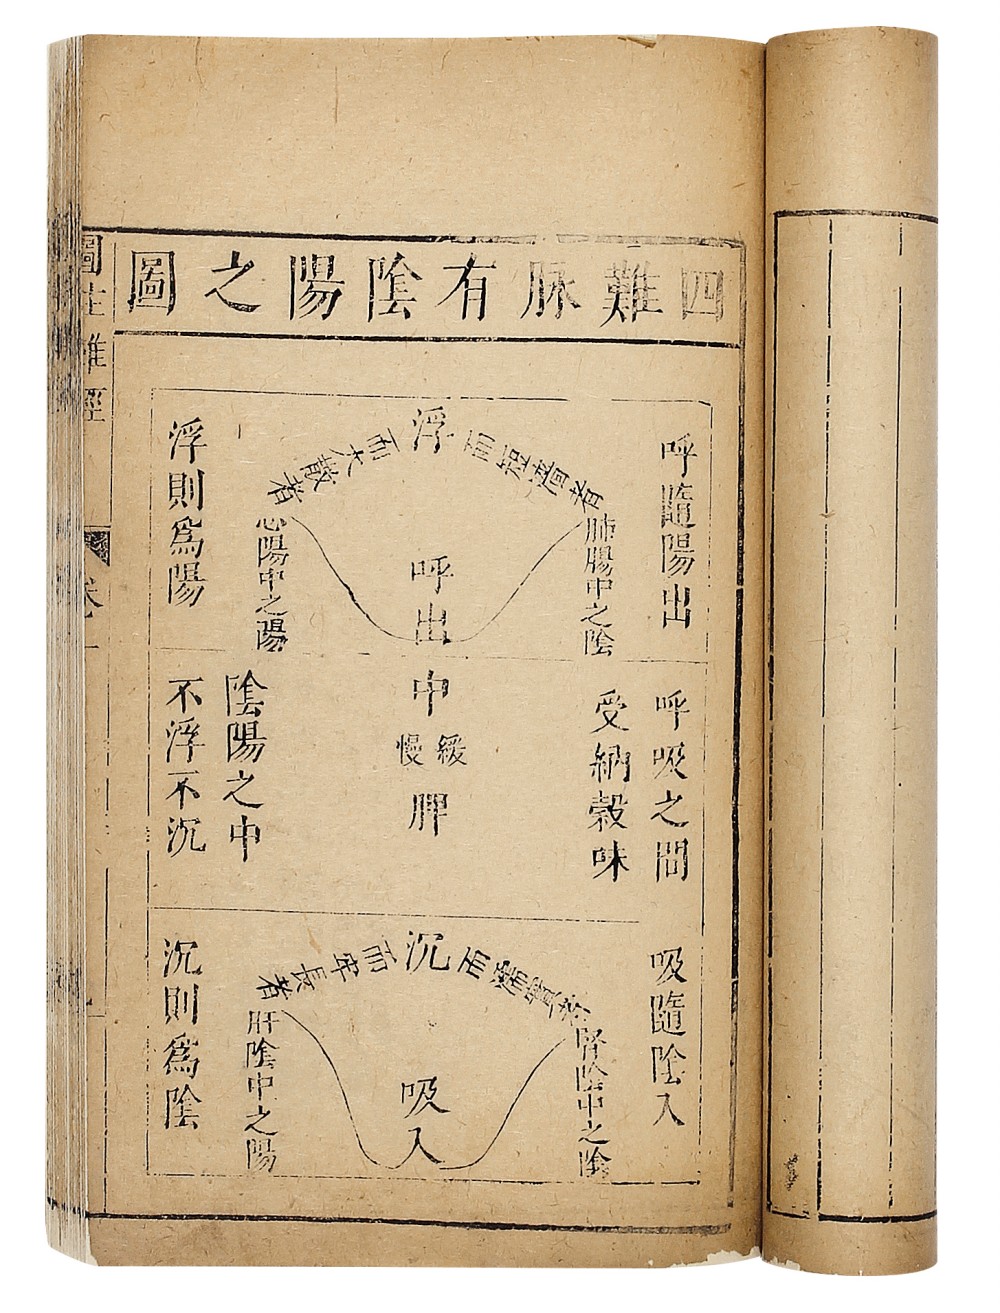 四難脉有陰陽之圖
呼隨陽出
浮
而短濇者
肺陽中之陰
而大散者
心陽中之陽
呼出
浮則爲陽
呼吸之間
受納穀味
中
緩慢
脾
陰陽之中
不浮不沉
吸隨陰入
沉
而濡實者
腎陰中之陰
而牢長者
肝陰中之陽
吸入
沉則爲陰
圖註難經
卷一